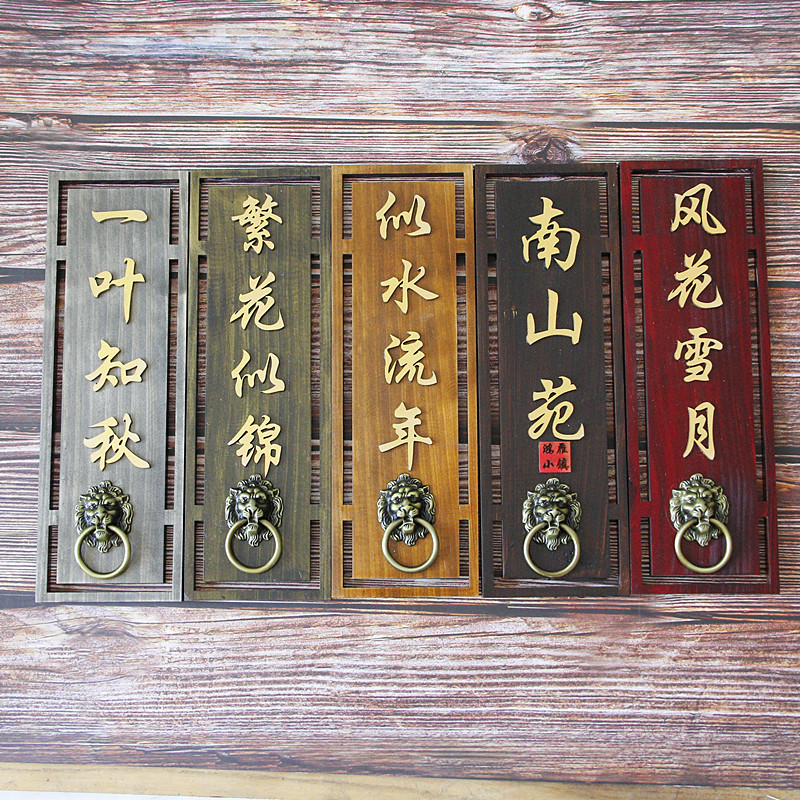 一叶知秋
繁花似锦
似水流年
南山苑
鸿雁
小镇
风花雪月